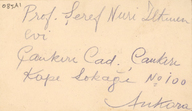 08321
Prof. Şeref Nuri İlkmen
evi
Çankırı Cad. Çankırı
Kapı Sokağı No 100
Ankara